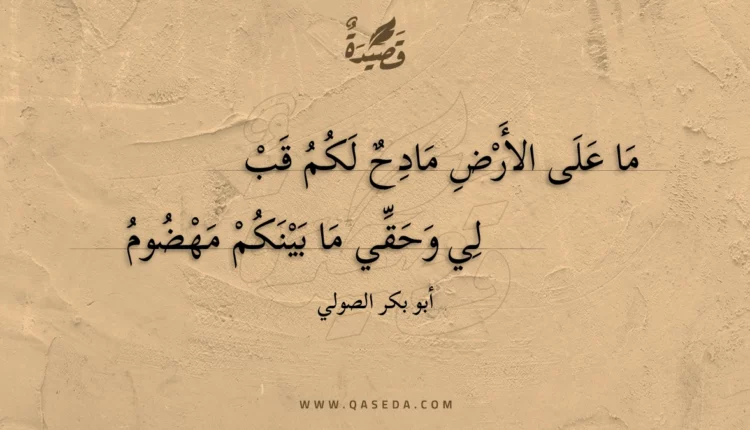 قَصِيْدَةٌ
مَا عَلَى الأَرْضِ مَادِحٌ لَكُمُ قَبْ
لِي وَحَقِّي مَا بَيْنَكُمْ مَهْضُومُ
أبو بكر الصولي
WWW.QASEDA.COM